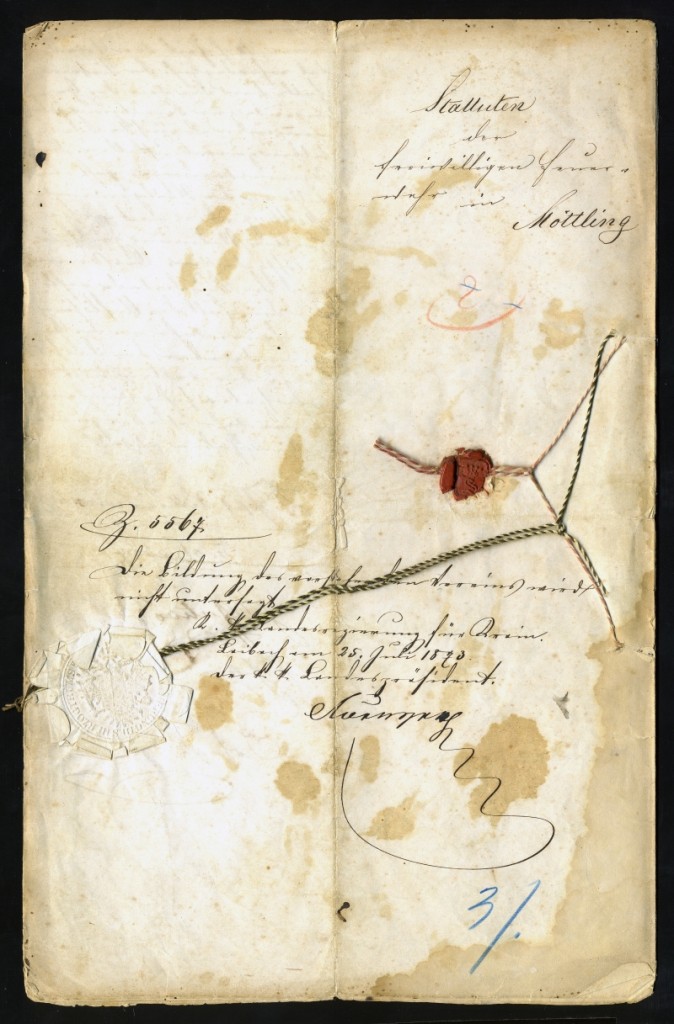 Statuten
der
freiwilligen Feuer-
wehr in
Möttling
Z. 5567
Die Bildung des vorstehenden Vereins wird
nicht untersagt
K. k. Landesregierung für Krain.
Laibach am 25. Juli 1870
Der k. k. Landespräsident.
3/.